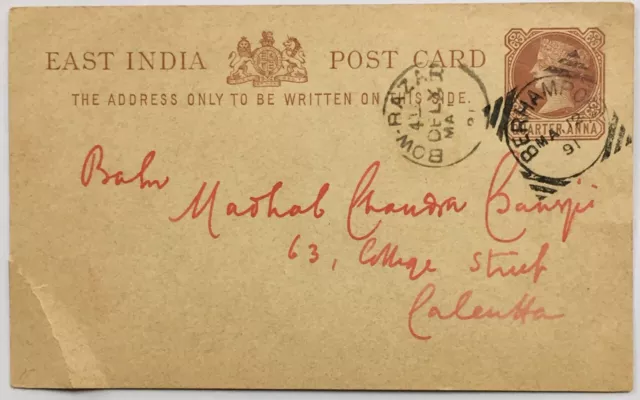 EAST INDIA POST CARD
THE ADDRESS ONLY TO BE WRITTEN ON THIS SIDE.
QUARTER ANNA
BOW-BAZAR
DELY
MA
91
BERHAMPO
MA 12
91
Babu
Madhab Chandra Banerji
63, College Street
Calcutta